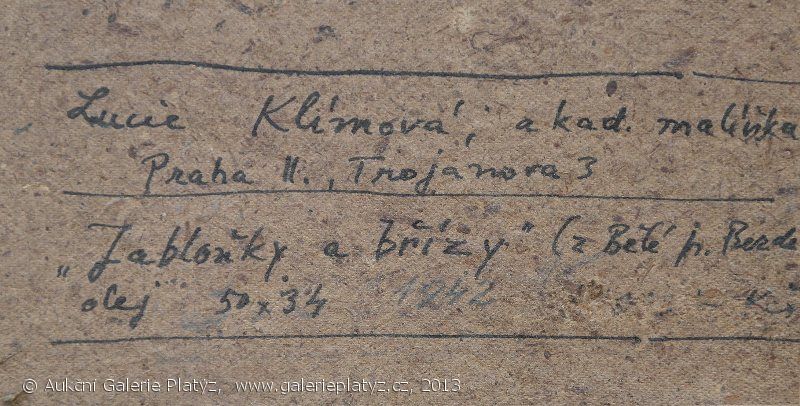 Lucie Klímová, akad. malířka
Praha II., Trojanova 3
„Jabloňky a břízy" (z Bělé p. Bezde
olej 50x34 1942
© Aukční Galerie Platýz, www.galerieplatyz.cz, 2013